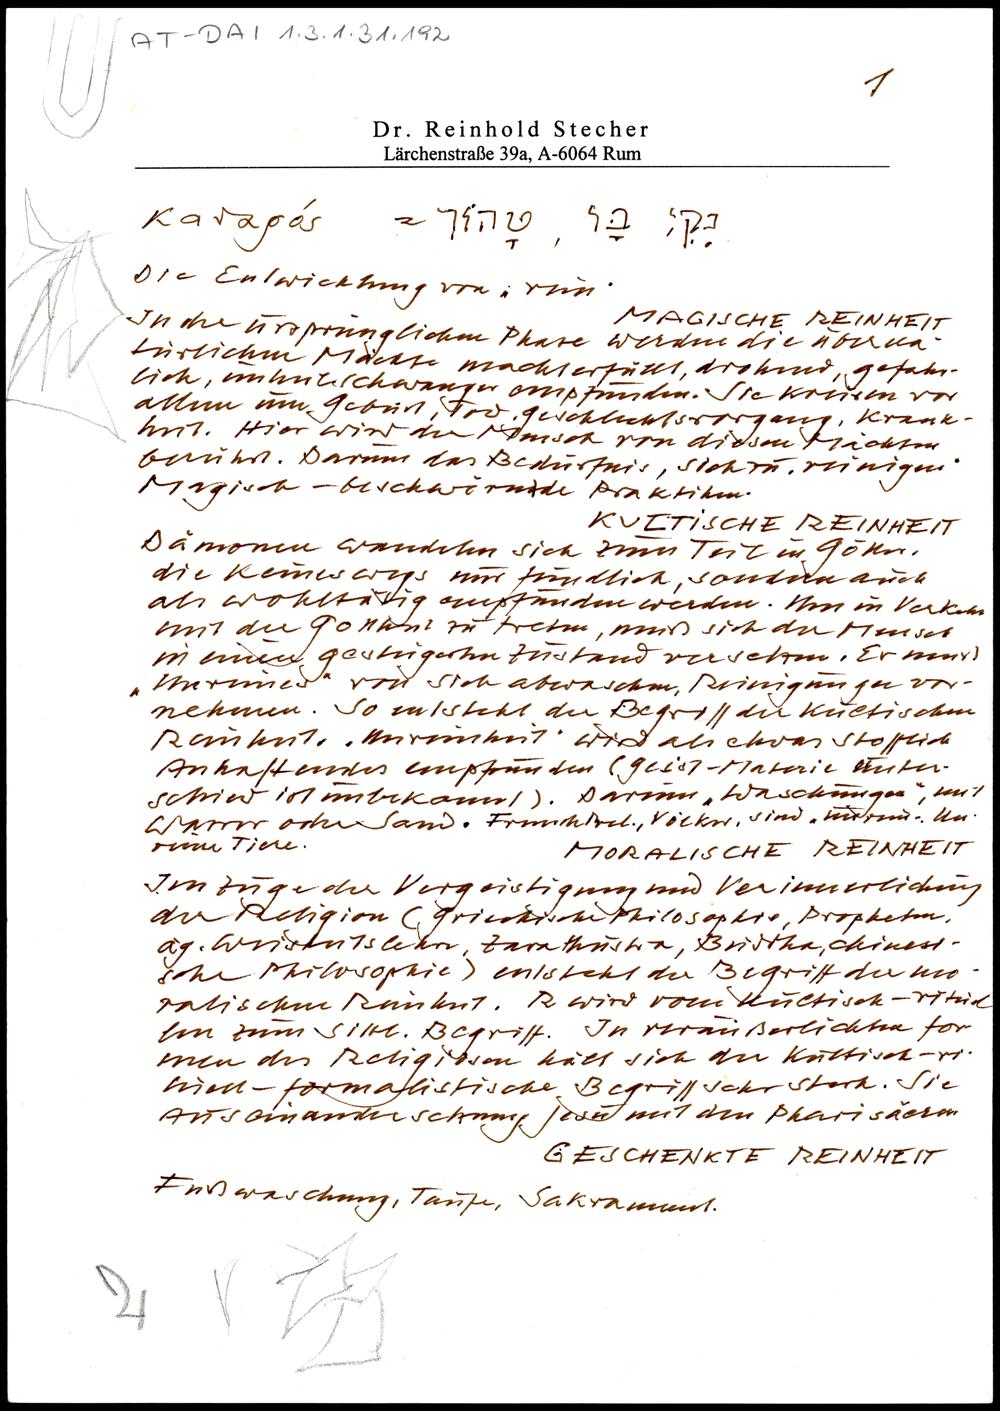 AT-DAI 1.3.1.31.192
1
Dr. Reinhold Stecher
Lärchenstraße 39a, A-6064 Rum
Die Entwicklung von „rein"
MAGISCHE REINHEIT
In der ursprünglichen Phase werden die überna-
türlichen Mächte machterfüllt, drohend, gefähr-
lich, unheilschwanger empfunden. Sie kreisen vor
allem um Geburt, Tod, Geschlechtsvorgang, Krank-
heit. Hier wird der Mensch von diesen Mächten
berührt. Darum das Bedürfnis, sich zu „reinigen"
Magisch – beschwörende Praktiken.
KULTISCHE REINHEIT
Dämonen wandeln sich zum Teil in Götter,
die keineswegs nur feindlich, sondern auch
als wohltätig empfunden werden. Um in Verkehr
mit der Gottheit zu treten, muß sich der Mensch
in einen gesteigerten Zustand versetzen. Er muß
„Unreines" von sich abwaschen, Reinigungen vor-
nehmen. So entsteht der Begriff der kultischen
Reinheit. „Unreinheit" wird als etwas stofflich
Anhaftendes empfunden (Geist-Materie Unter-
schied ist unbekannt). Darum „Waschungen", mit
Wasser oder Sand. Völker, sind „unrein". Un-
reine Tiere.
MORALISCHE REINHEIT
Im Zuge der Vergeistigung und Verinnerlichung
der Religion (Griechische Philosophie, Propheten,
äg. Weisheitslehre, Zarathustra, Buddha, chinesi-
sche Philosophie) entsteht der Begriff der mo-
ralischen Reinheit. R wird vom kultisch-rituel
len zum sittl. Begriff. In veräußerlichten For
men des Religiösen hält sich der kultisch-ri-
tuell-formalistische Begriff sehr stark. Sie
Auseinandersetzung Jesu mit den Pharisäern
GESCHENKTE REINHEIT
Fußwaschung, Taufe, Sakrament.